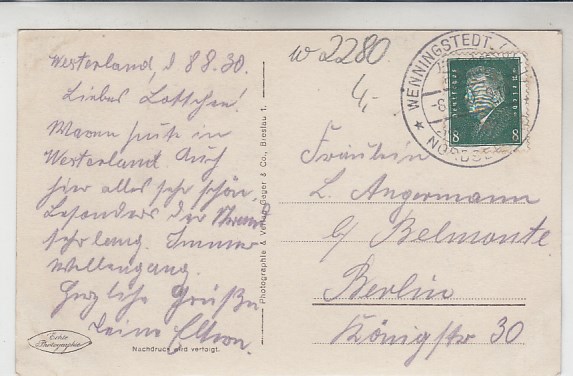 Westerland, d 8 8. 30.
Liebes Lottchen!
Waren heute in
Westerland. Auch
hier alles sehr schön,
besonders der Strand
sehr lang. Immer
Wellengang.
Herzliche Grüße
Deine Eltern.
Echte
Photographie
Nachdruck wird verfolgt.
Photographie & Verlag Geyer & Co., Breslau 1.
w 2280
4,-
WENNINGSTEDT
-8.
NORDSEE
Deutsches Reich
8 8
Fräulein
L. Angermann
b/ Belmonte
Berlin
Königstr 30